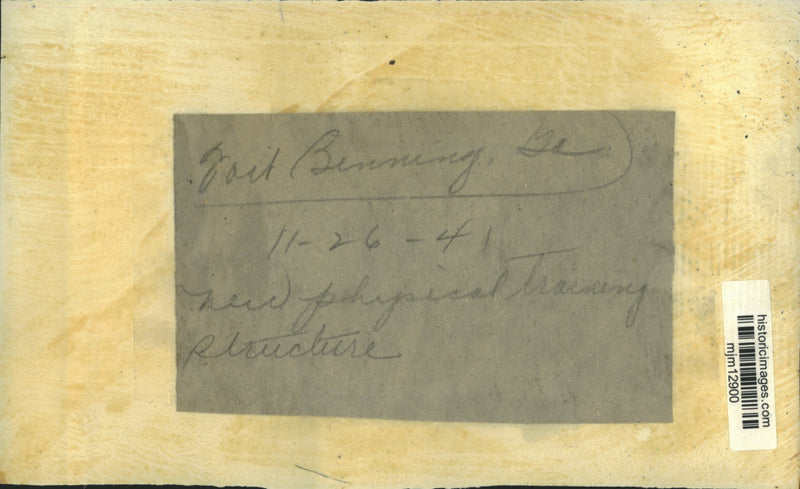 Fort Benning, Ga
11-26-41
new physical training
structure
historicimages.com
mjm12900